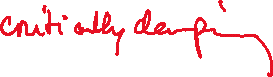 critically damping